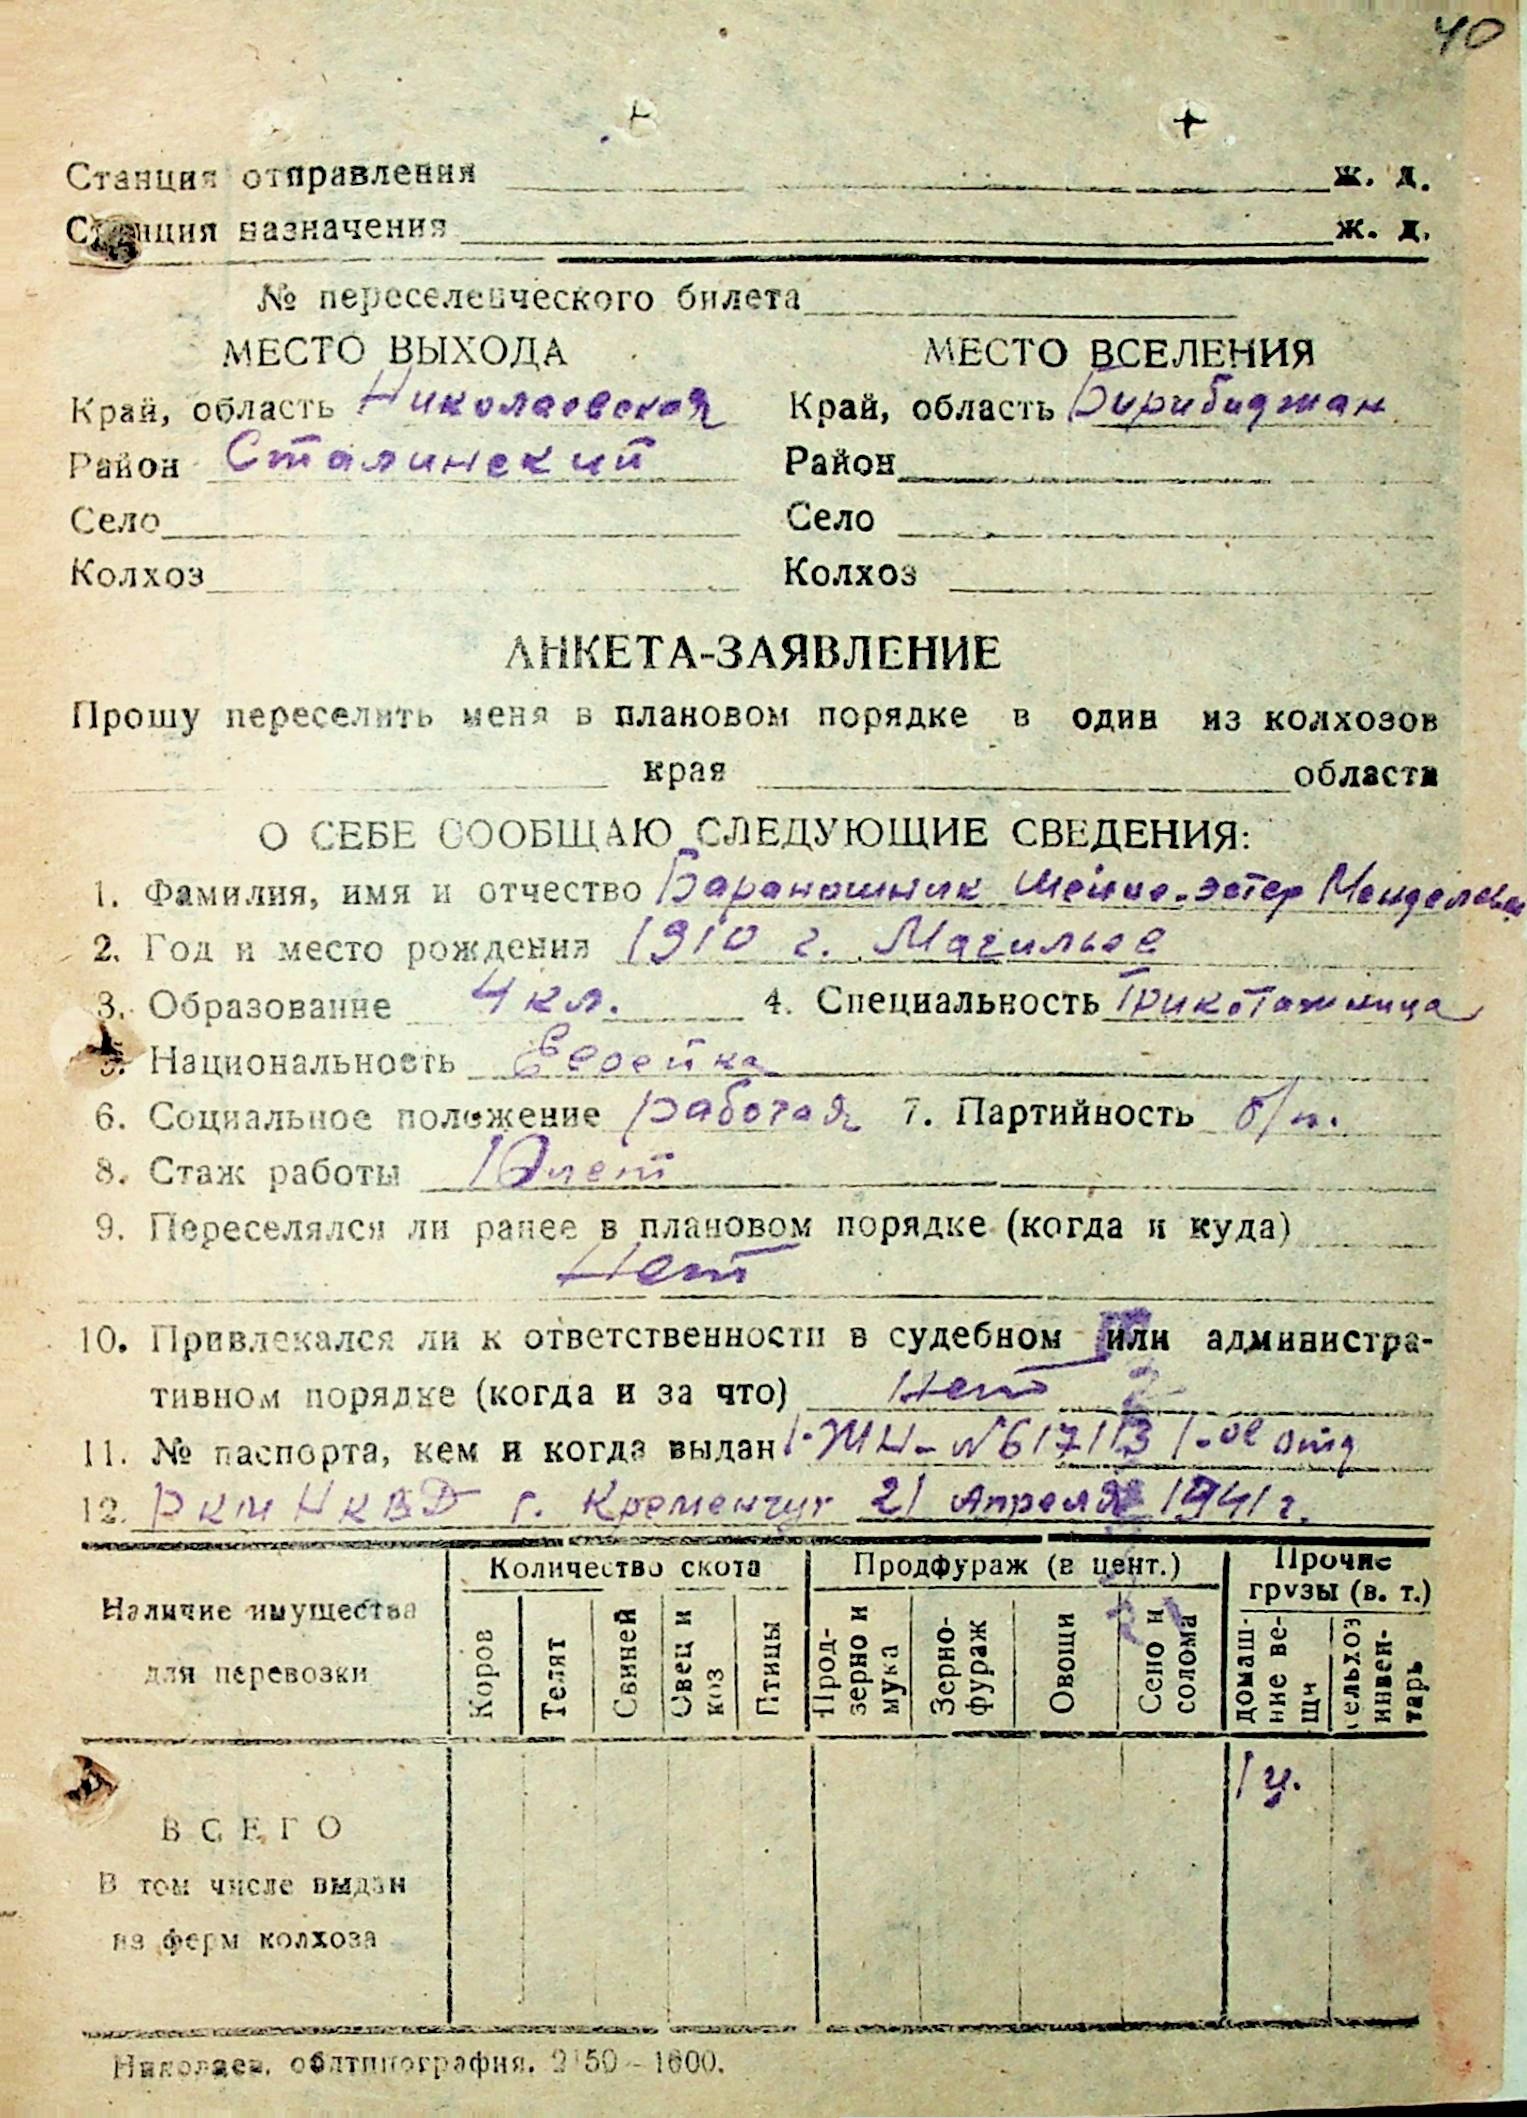 40
Станция отправления ж. д.
Станция назначения ж. д.
№ переселенческого билета
МЕСТО ВЫХОДА МЕСТО ВСЕЛЕНИЯ
Край, область Николаевская Край, область Биробиджан
Район Сталинский Район
Село Село
Колхоз Колхоз
АНКЕТА-ЗАЯВЛЕНИЕ
Прошу переселить меня в плановом порядке в один из колхозов
края области
О СЕБЕ СООБЩАЮ СЛЕДУЮЩИЕ СВЕДЕНИЯ:
1. Фамилия, имя и отчество Баранашник Шейне-Эстер Менделевна
2. Год и место рождения 1910 г. Магильов
3. Образование 4 кл. 4. Специальность Трикотажница
5. Национальность Еврейка
6. Социальное положение рабочая 7. Партийность б/п.
8. Стаж работы 10 лет
9. Переселялся ли ранее в плановом порядке (когда и куда)
Нет
10. Привлекался ли к ответственности в судебном или администра-
тивном порядке (когда и за что) Нет
11. № паспорта, кем и когда выдан I-ЖН-№617113 1-ое отд
12. РКМ НКВД г. Кременчуг 21 Апреля 1941 г.
Наличие имущества для перевозки Количество скота Продфураж (в цент.) Прочие грузы (в. т.)
Коров Телят Свиней Овец и коз Птицы Прод-зерно и мука Зерно-фураж Овощи Сено и солома домаш-ние ве-щи сельхоз инвен-тарь
1 ц.
ВСЕГО
В том числе выдан
из ферм колхоза
Николаев, облтипография. 2150-1600.